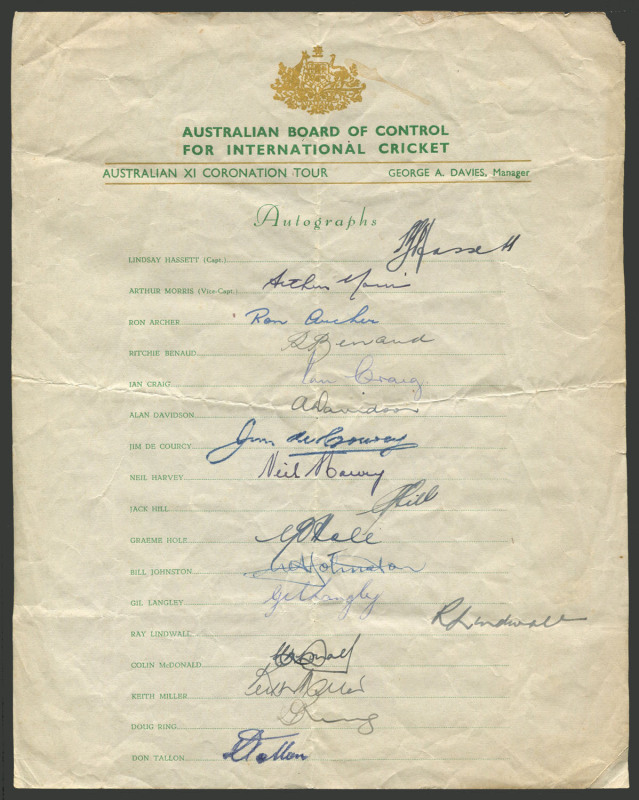 AUSTRALIAN BOARD OF CONTROL
FOR INTERNATIONAL CRICKET
AUSTRALIAN XI CORONATION TOUR GEORGE A. DAVIES, Manager
Autographs
LINDSAY HASSETT (Capt.) Hassett
ARTHUR MORRIS (Vice-Capt.) Arthur Morris
RON ARCHER Ron Archer
RITCHIE BENAUD R Benaud
IAN CRAIG Ian Craig
ALAN DAVIDSON A Davidson
JIM DE COURCY Jim de Courcy
NEIL HARVEY Neil Harvey
JACK HILL J Hill
GRAEME HOLE G Hole
BILL JOHNSTON W Johnston
GIL LANGLEY G Langley
RAY LINDWALL R Lindwall
COLIN McDONALD McDonald
KEITH MILLER Keith Miller
DOUG RING D Ring
DON TALLON D Tallon